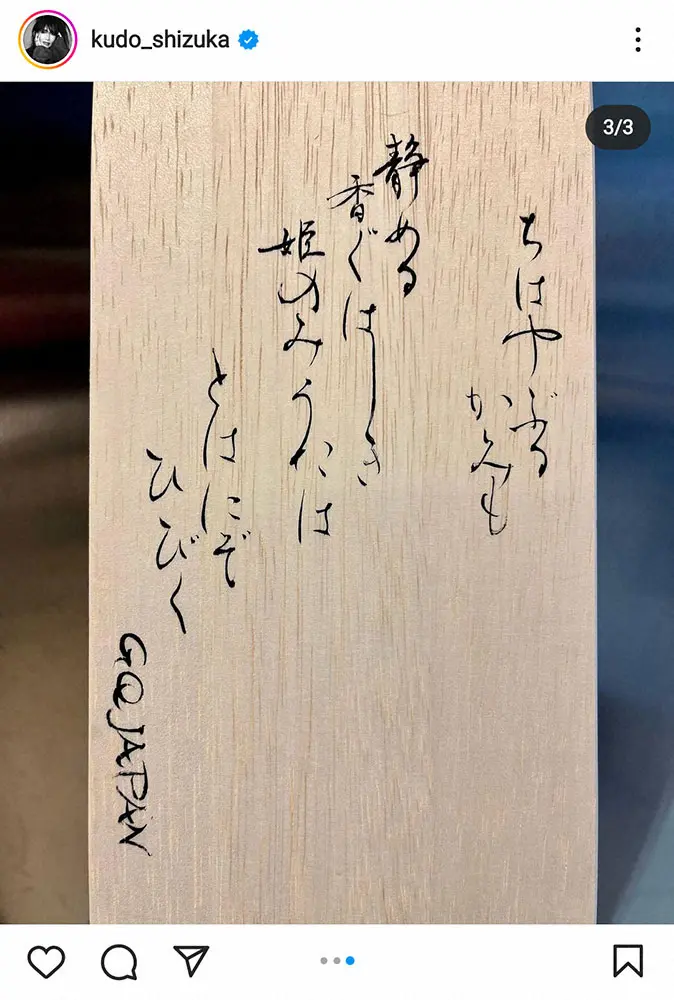 kudo_shizuka
3/3
ちはやぶる
かみも
静める
香ぐはしき
姫のみうたは
とはにぞ
ひびく
GQ JAPAN